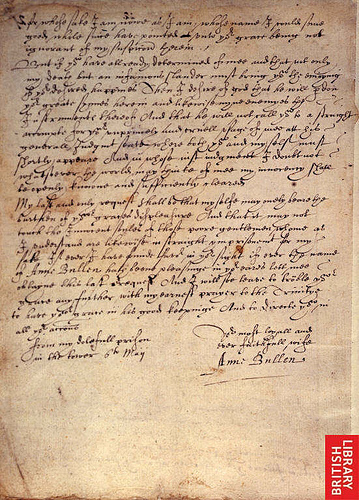 for whose sake I am nowe as I am, whose name I could some
good while since have pointed at, yor grace being not
ignorant of my suspicion therein.
But if yow have allready determined of mee and that not only
my death but an infamous slander must bring yow the enjoying
of yor desired happines Then I desire of god that he will pardon
yor great sinnes herein and likewise my enemyes the
instruments thereof And that he will not call yow to a straight
accompte for yor unprincely and cruell usage of mee at his
generall Judgment seate where both yow and my selfe must
shortly appeare And in whose just judgment I doubt not
whatsoever the world may thinke of mee my innocency shall
be openly knowne and sufficiently cleared
My last and only request shall be that my selfe may only beare the
burthen of yor graces displeasure And that it may not
touch the Innocent soules of those poore gentlemen whome as
I understand are likewise in straight ymprisonment for my
sake If ever I have found favor in yor sight if ever the name
of Anne Bullen hath beene pleasinge in yor eares lett mee
obtayne this last request And I will soe leave to trouble yor
grace any further with my ernest prayer to the Trinitye
to have yor grace in his good keepinge And to directe yow in
all yor accions
from my dolefull prison
in the tower 6th May
Yor most loyall and
ever faithfull wife
Anne Bullen
BRITISH
LIBRARY